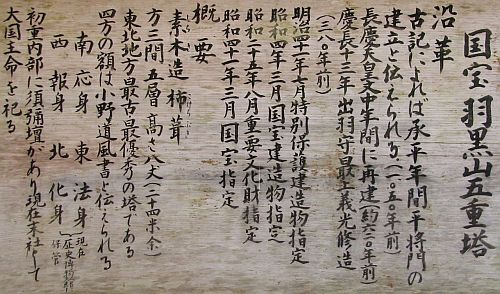 国宝 羽黒山五重塔
沿革
古記によれば承平年間平将門の
建立と伝えられる、(一〇五〇年前)
長慶天皇文中年間に再建(約六二〇年前)
慶長十三年出羽守最上義光修造
(三八〇年前)
明治四十一年七月特別保護建造物指定
昭和四年三月国宝建造物指定
昭和二十五年八月重要文化財指定
昭和四十一年三月国宝指定
概要
素木造 杮葺
方三間五層 高さ八丈(二十四米余)
東北地方最古最優秀の塔である
四方の額は小野道風書と伝えられる
南 応身 東 法身
西 報身 北 化身 (現在歴史博物館保管)
初重内部に須彌壇があり現在末社として
大国主命を祀る